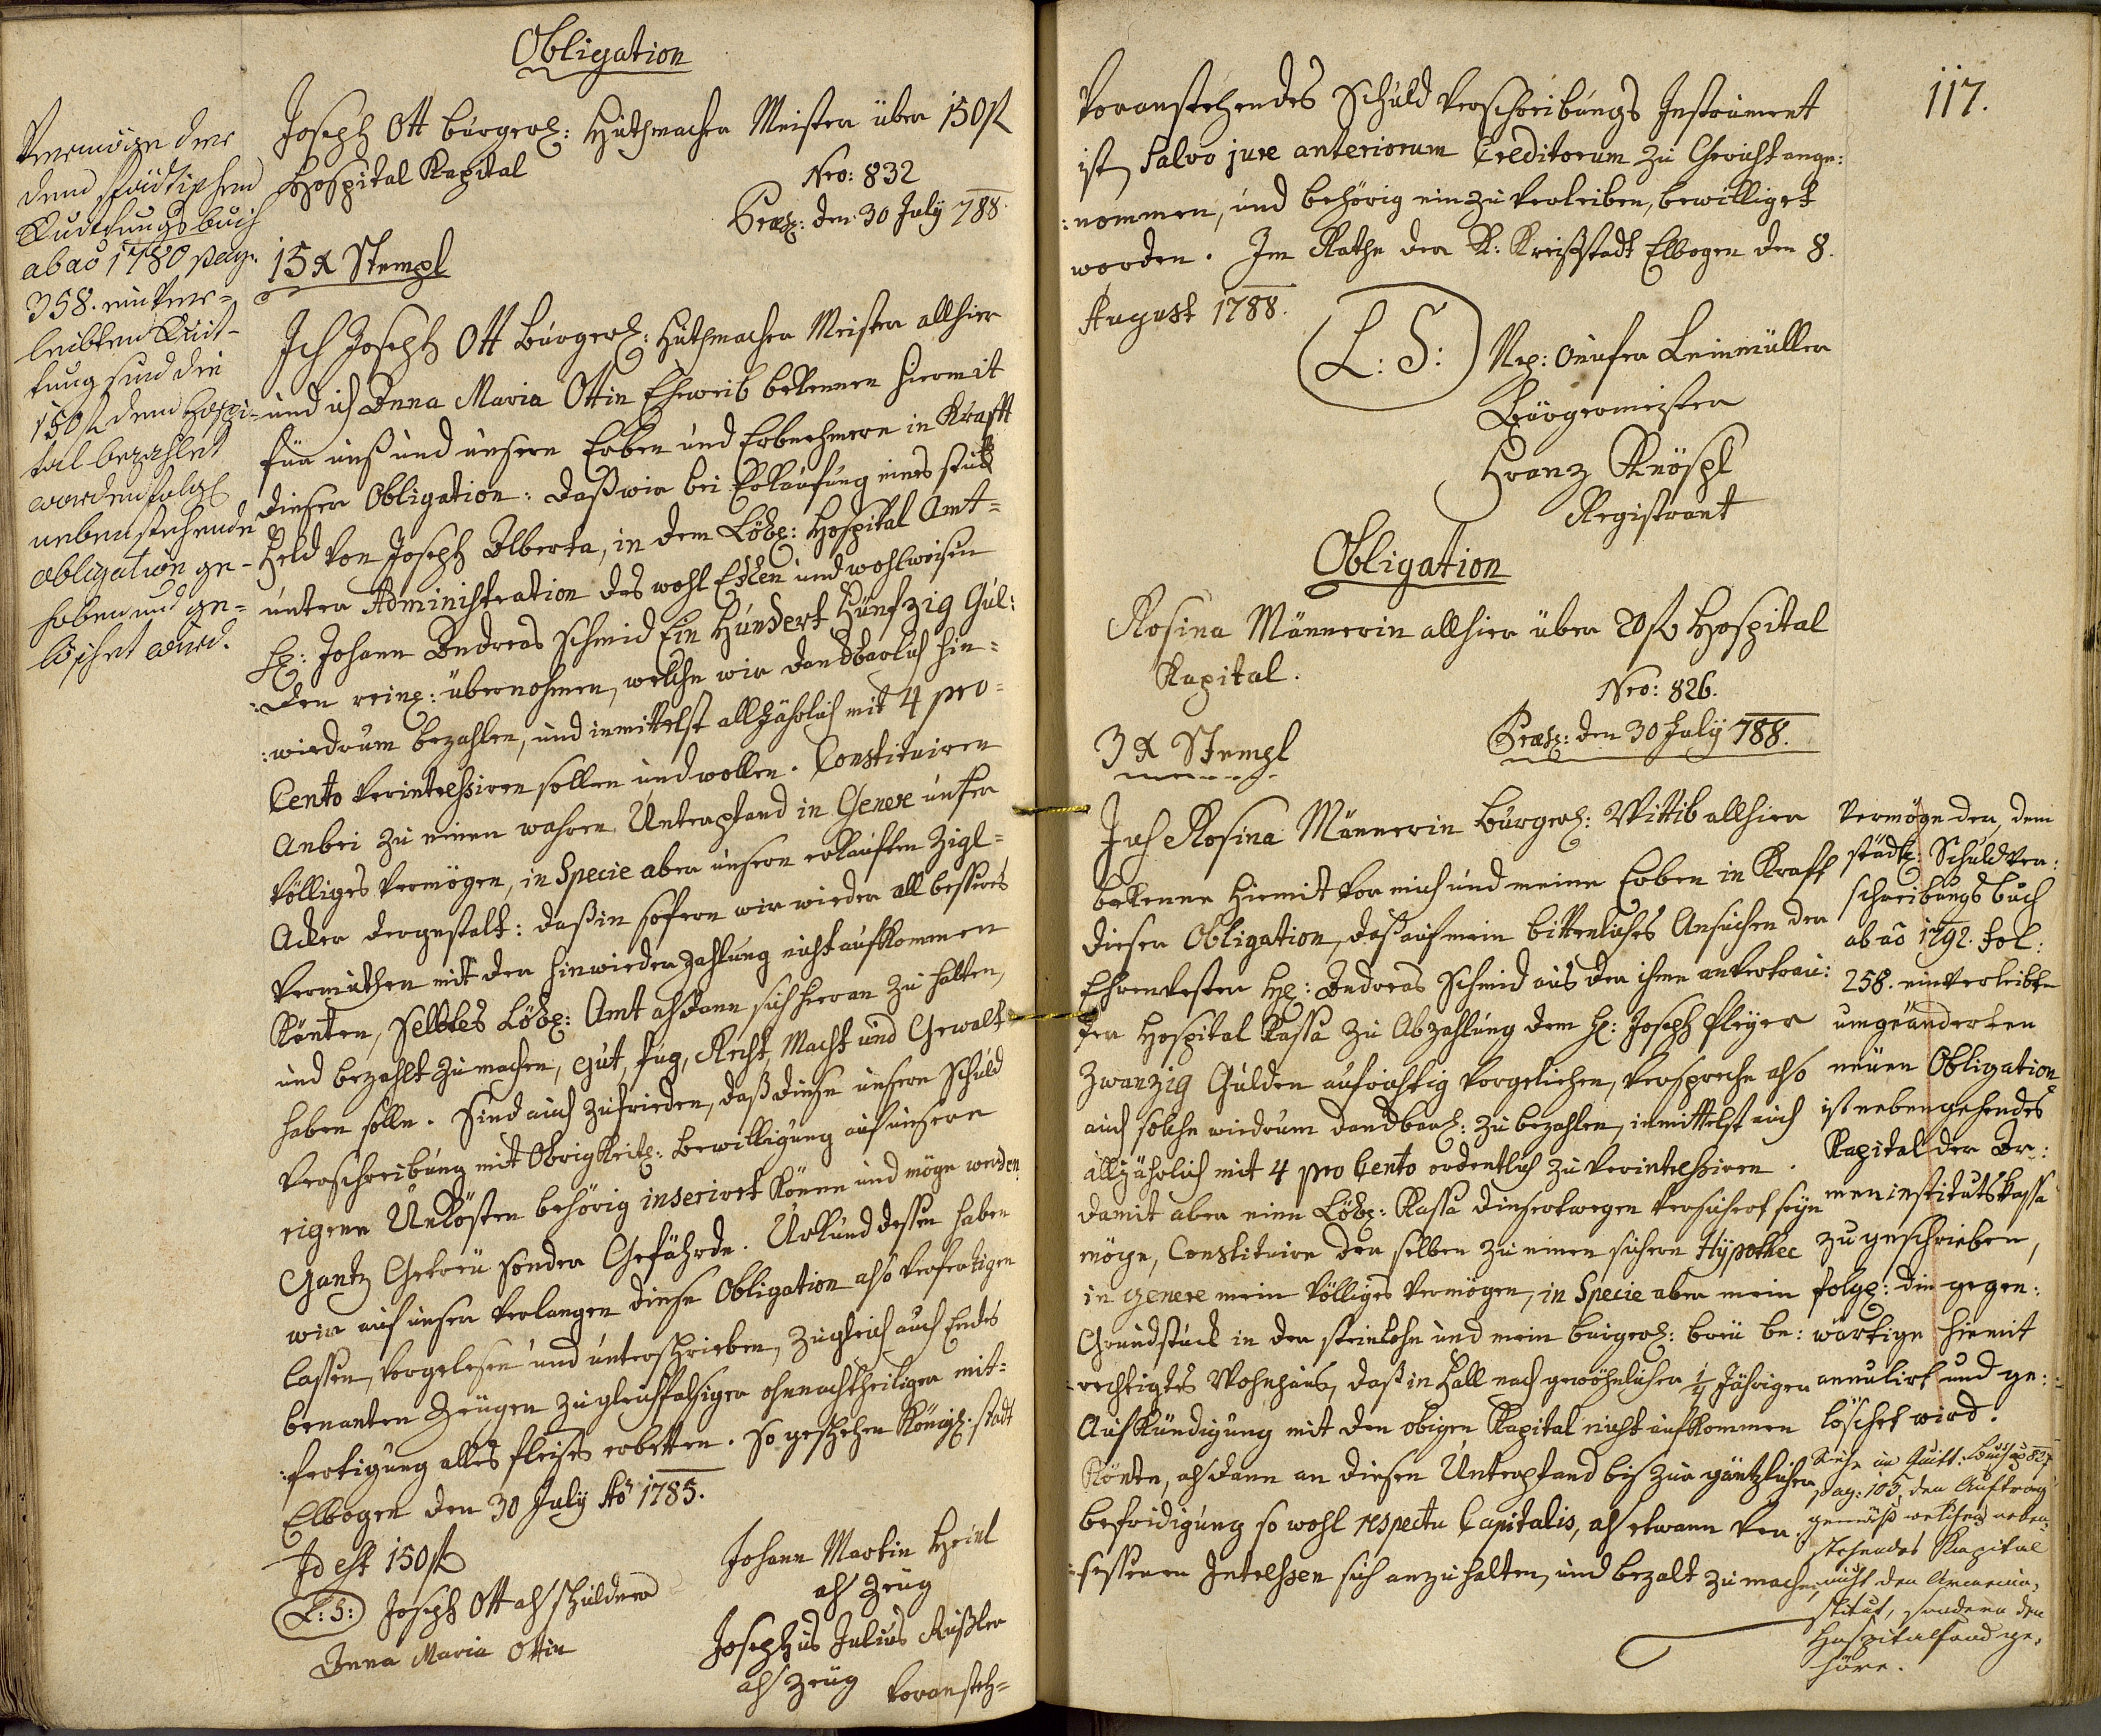 Obligation
Joseph Ott bürgerl: Huthmacher Meister über 150 fl
Hospital Kapital
Nro: 832
Præs: den 30 July 788.
15 x Stempl
Vermöge der
dem städtischen
Quittungsbuch
ab aõ 1780 pag.
358. einver-
leibten Quit-
tung sind die
150 fl dem Hospi-
tal bezahlet
worden, folgl
nebenstehende
Obligation ge-
hoben und ge-
löschet wird.
Ich Joseph Ott bürgerl: Huthmacher Meister allhier
und ich Anna Maria Ottin Eheweib bekennen hiermit
für unß und unsere Erben und Erbnehmere in Krafft
dieser Obligation: daß wir bei Erkaufung eines stuk
Feld von Joseph Alberta, in dem Löbl: Hospital Amt-
unter Administration des wohl Edlen und wohlweisen
H: Johann Andreas Schmid Ein Hundert Fünfzig Gul:
:den rein: übernohmen, welche wir dandbarlich hin-
:wiedrum bezahlen, und inmittelst alljährlich mit 4 pro-
Cento verinteressiren sollen und wollen. Constituiren
Anbei zu einen wahren Unterpfand in Genere unser
völliges Vermögen, in Specie aber unsern erkauften Zigl-
Acker dergestalt: daß in sofern wir wieder all besseres
Vermuthen mit der hinwieder zahlung nicht aufkommen
Könten, selbtes Löbl: Amt alsdann sich hieran zu halten,
und bezahlt zu machen, gut, fug, Recht, Macht und Gewalt
haben solle. Sind auch zufrieden, daß diese unsere Schuld
Verschreibung mit Obrigkeitl: bewilligung auf unsere
eigene Unkösten behörig inserirt könne und möge werden.
Gantz Getreu sonder Gefährde. Urkund dessen haben
wir auf unser verlangen diese Obligation also verfertigen
lassen, vorgelesen und unterschrieben, zugleich auch Endes
benanten Zeugen zu gleichfalsiger ohnnachtheiliger mit-
:fertigung alles fleises erbetten. So geschehen Königl: stadt
Elbogen den 30 July Aõ 1785.
Id est 150 fl
L: S: Joseph Ott als schuldner
Anna Maria Ottin
Johann Martin Heinl
als Zeug
Josephus Julius Rußler
als Zeug
Voransteh-
117.
Voranstehendes Schuld Verschreibungs Instrument
ist Salvo jure anteriorum Creditorum zu Gericht ange:
:nommen, und behörig einzuverleiben, bewilliget
worden. Im Rathe der K: Kreißstadt Elbogen den 8.
August 1788.
L: S: Nep: Onufer Leinmüller
Bürgermeister
Franz Knöspl
Registrant
Obligation
Rosina Männerin allhier über 20 fl Hospital
Kapital.
Nro: 826.
Præs: den 30 July 788.
3 x Stempl
Ich Rosina Männerin bürgerl: Wittib allhier
bekenne hiemit vor mich und meine Erben in Kraft
dieser Obligation, daß auf mein bittenliches Ansuchen der
Ehrenvester H: Andreas Schmid aus der ihme anvertrau:
ten Hospital Kassa zu Abzahlung dem H: Joseph Pleyer
Zwanzig Gulden aufrichtig vorgeliehen, verspreche also
auch solche wiedrum dandbarl: zu bezahlen, inmittelst auch
alljährlich mit 4 pro Cento ordentlich zu verinteressiren.
damit aber eine Löbl: Kassa diesertwegen versichert seyn
möge, Constituire der selben zu einen sichern Hypothec
in genere mein völliges Vermögen, in Specie aber mein
Grundstuck in der steinlohe und mein burgerl: breu be:
:rechtigtes Wohnhaus, daß in Fall nach gewöhnlicher 1/4 Jährigen
Aufkündigung mit den obigen Kapital nicht aufkommen
Könte, alsdann an diesen Unterpfand bis zur gäntzlichen
befridigung so wohl respectu Capitalis, als etwann ver:
:sessenen Interessen sich anzuhalten, und bezalt zu machen,
Vermöge der, dem
städt: Schuldver:
schreibungs buch
ab aõ 1792. fol:
258. einverleibte
umgeänderten
neuen Obligation
ist nebengehendes
Kapital der Ar:
meninstitutskassa
zugeschrieben,
folgl: die gegen:
wärtige hiemit
annulirt und ge:
löschet wird.
Siehe im Quitt: Buch aõ 827
pag: 105, den Auftrag
gemäß welchen neben-
stehendes Kapital
nicht den Armenin-
stitut, sondern den
Hospitalfond ge-
höre.